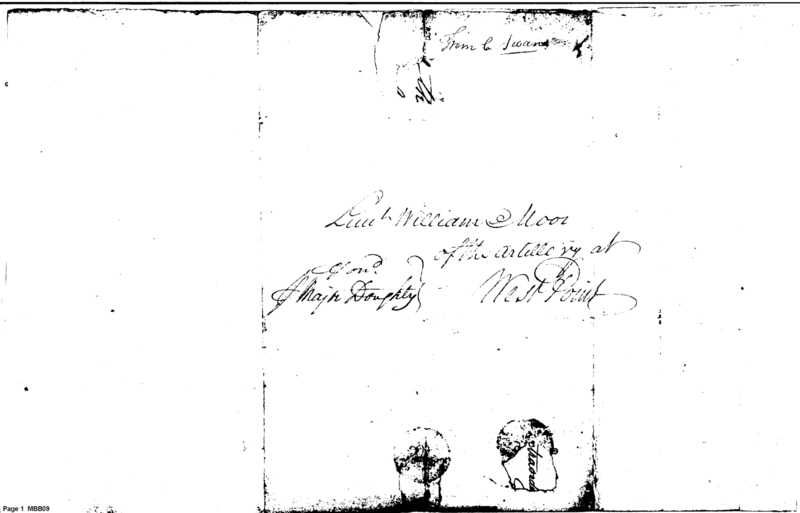 From C Swan
Lieut. William Moor
of the Artillery at
Hond.
Majr Doughty
West Point
Page 1 MBB09